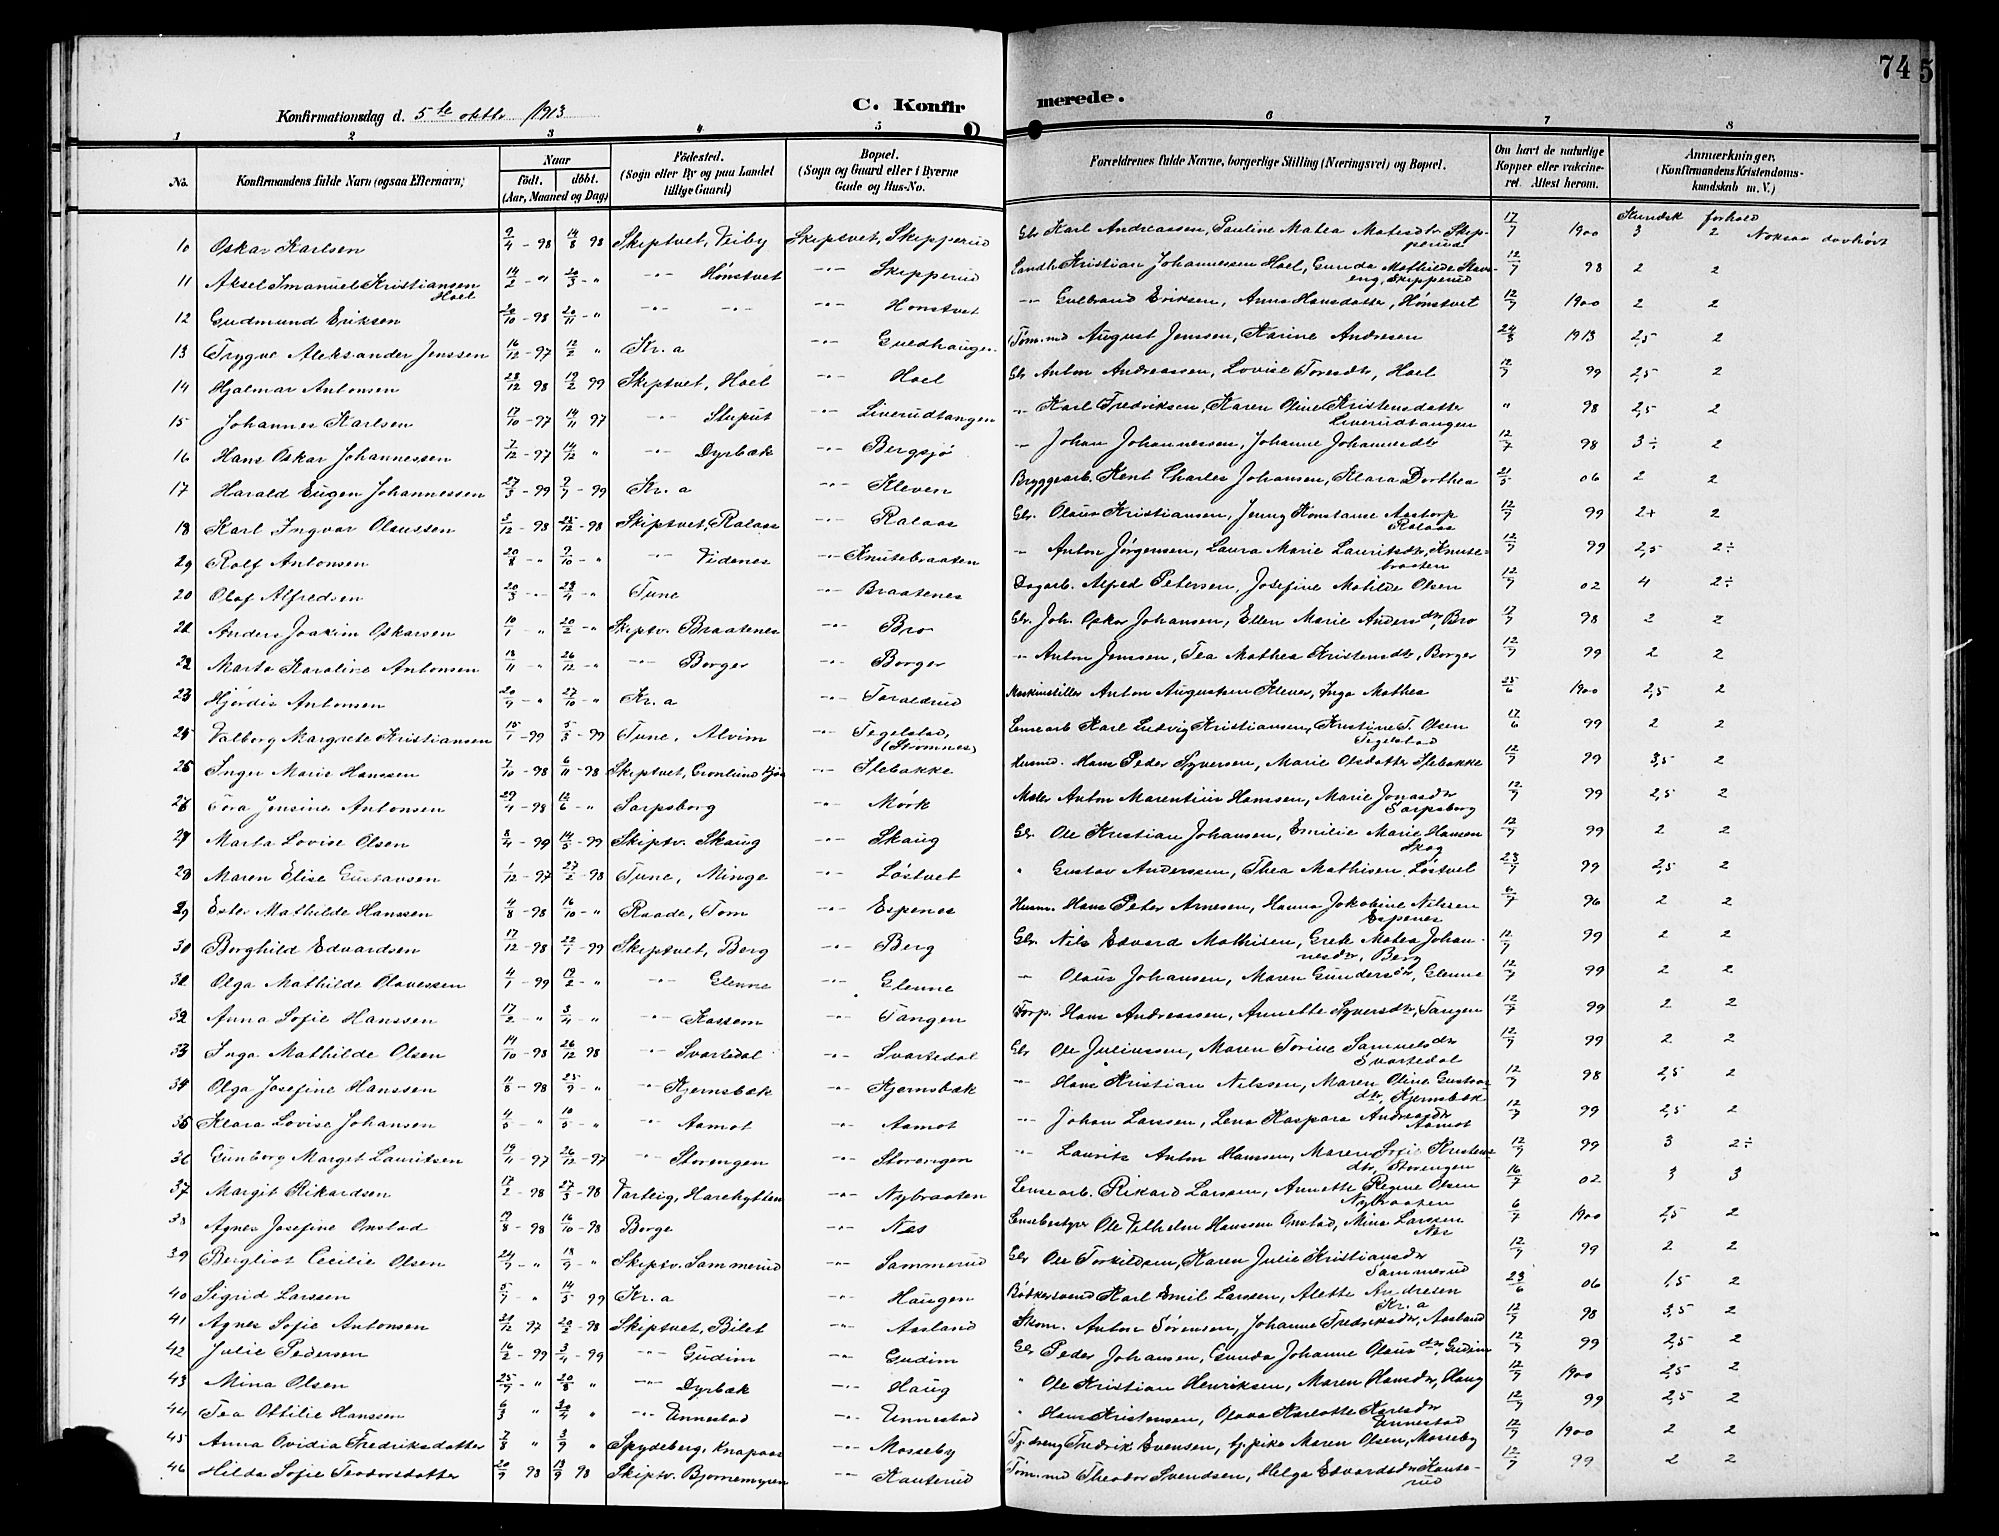 74
5
Konfirmationsdag d. 5te oktbr 1913
C. Konfir merede.
1 2 3 4 5 6 7 8
No. Konfirmandens fulde Navn (ogsaa Efternavn) Naar födt. döbt. (Aar, Maaned og Dag) Födested. (Sogn eller By og paa Landet tillige Gaard) Bopæl. (Sogn og Gaard eller i Byerne Gade og Hus-No. Forældrenes fulde Navne, borgerlige Stilling (Næringsvei) og Bopæl. Om havt de naturlige Kopper eller vakcineret. Attest herom. Anmærkninger. (Konfirmandens Kristendomskundskab m. V.)
Kundsk forhold
10 Oskar Karlsen 9/4 - 98 14/8 98 Skiptvet, Veiby Skiptvet, Skipperud Gbr Karl Andreassen, Pauline Matea Matesdtr Skipperud 17/7 1900 3 2
11 Aksel Imanuel Kristiansen Hoel 14/2 - " 20/3 - " -"- Hønstvet -"- Skipperud Landh. Kristian Johannessen Hoel, Gunda Mathilde Skipperud 12/7 98 2 2
12 Gudmund Eriksen 20/10 - 98 20/11 - " -"- -"- -"- Hønstvet -"- Gulbrand Eriksen, Anna Hansdatter, Hønstvet 12/7 1900 2 2
13 Trygve Aleksander Jenssen 16/12 - 97 12/2 " Kr.a -"- Guldhaugen Tøm.md August Jenssen, Karine Andresen 24/3 1913 2,5 2
14 Hjalmar Antonsen 28/12 98 19/2 99 Skiptvet, Hoel -"- Hoel Gbr Anton Andreassen, Lovise Toresdtr, Hoel 12/7 99 2,5 2
15 Johannes Karlsen 17/10 - 97 14/11 97 -"- Stuput -"- Liverudtangen -"- Karl Fredriksen, Karen Oline Kristensdatter Liverudtangen " 98 2,5 2
16 Hans Oskar Johannessen 7/12 - 97 14/12 " -"- Dyrbæk -"- Bergsjø -"- Johan Johannessen, Johanne Johannesdtr 12/7 98 3÷ 2
17 Harald Eugen Johannessen 27/3 - 99 9/7 - 99 Kr.a -"- Kleven Bryggearb. Kent Charles Johansen, Klara Dorthea 21/5 06 2 2
18 Karl Ingvar Olaussen 3/12 - 98 25/12 - 98 Skiptvet, Ralaas -"- Ralaas Gbr. Olaus Kristiansen, Jenny Konstanse Aastorp Ralaas 12/7 99 2+ 2
29 Rolf Antonsen 20/8 - " 9/10 - " -"- Videnes -"- Knutebraaten -"- Anton Jørgensen, Laura Marie Lauritsdtr, Knutebraaten 12/7 99 2,5 2÷
20 Olaf Alfredsen 20/3 - " 24/4 - " Tune -"- Braatenes Dagarb. Alfred Petersen, Josefine Matilde Olsen 12/7 02 4 2÷
21 Anders Joakim Oskarsen 10/1 " 20/2 - " Skiptv. Braatenes -"- Bro Gbr. Joh. Oskar Johansen, Ellen Marie Andersdtr, Bro 12/7 98 2 2
22 Marta Karoline Antonsen 18/11 " 26/12 - " -"- Borger -"- Borger -"- Anton Jenssen, Tea Mathea Kristensdtr, Borger 12/7 99 2 2
23 Hjørdis Antonsen 20/9 - " 27/10 - " Kr.a -"- Toraldrud Maskinstiller Anton Augustsen Klever, Inga Mathea 25/6 1900 2,5 2
25 Valborg Margrete Kristiansen 15/1 - 99 5/3 - 99 Tune, Alvim -"- Tegelstad, (Strømnes) Lensearb Karl Ludvig Kristiansen, Kristine T. Olsen Tegelstad 17/6 99 2 2
26 Inger Marie Hanssen 7/10 - 98 6/11 - 98 Skiptvet, Grønlund -"- Slebakke Husmd. Hans Peder Syversen, Marie Olsdatter Slebakke 12/7 99 3,5 2
Tora Jensine Antonsen 29/4 - 98 12/6 - " Sarpsborg -"- Mørk Maler Anton Marentius Hanssen, Marie Jonasdtr Sarpsborg 12/7 99 2,5 2
27 Marta Lovise Olsen 8/4 - 99 14/5 - 99 Skiptv. Skaug -"- Skaug Gbr. Ole Kristian Johansen, Emilie Marie Hansen Skog 12/7 99 2 2
28 Maren Elise Gustavsen 1/12 - 97 27/2 - 98 Tune, Minge -"- Løstvet " Gustav Anderssen, Thea Mathisen Løstvet 23/7 99 2,5 2
29 Ester Mathilde Hanssen 4/8 - 98 16/10 - " Raade, Tom -"- Espenes Husm. Hans Peter Arnesen, Hanna Jakobine Nilssen Espenes 6/7 96 2 2
30 Borghild Edvardsen 17/12 - 98 22/1 - 99 Skiptvet, Berg -"- Berg Gbr. Nils Edvard Mathisen, Grete Matea Johannesdtr, Berg 12/7 99 2 2
31 Olga Mathilde Olavessen 4/1 - 99 19/2 - " -"- Glenne -"- Glenne -"- Olaus Johansen, Maren Gundersdtr, Glenne 12/7 99 2 2
32 Anna Sofie Hanssen 17/2 - " 3/4 - " -"- Kassem -"- Tangen Torp. Hans Andreassen, Annette Syversdtr, Tangen 12/7 99 2 2
33 Inga Mathilde Olsen 14/10 - 98 26/12 98 -"- Svartedal -"- Svartedal Gbr Ole Juliussen, Maren Torine Samuelsdtr Svartedal 12/7 99 2 2
34 Olga Josefine Hanssen 11/8 - 98 25/9 - " -"- Kjernsbæk -"- Kjernsbæk -"- Hans Kristian Nilssen, Maren Oline Gustavsdtr, Kjernsbæk 12/7 98 2,5 2
35 Klara Lovise Johansen 4/5 - " 10/5 - " -"- Aamot -"- Aamot -"- Johan Larssen, Lena Kaspara Andreasdtr Aamot 12/7 99 2,5 2
36 Gunborg Marget Lauritsen 19/11 - 97 26/12 - 97 -"- Storengen -"- Storengen -"- Laurits Anton Hanssen, Maren Sofie Kristensdtr, Storengen 12/7 99 3 2÷
37 Margit Rikardsen 17/2 - 98 27/3 - 98 Varteig, Harehytten -"- Nybraaten Lensearb. Rikard Larssen, Annette Regine Olsen Nybraaten 16/7 02 3 3
38 Agnes Josefine Onstad 19/8 - 98 16/10 - 98 Borge -"- Næs Lensebestyrer Ole Vilhelm Hanssen Onstad, Mina Larssen Næs 6/7 1900 2,5 2
39 Bergliot Cecilie Olsen 24/7 - " 18/9 - " Skiptv. Sammerud -"- Sammerud Gbr Ole Torkildsen, Karen Julie Kristiansdtr Sammerud 12/7 99 2 2
40 Sigrid Larssen 5/7 - " 14/5 99 Kr.a -"- Haugen Bødkersvend Karl Emil Larssen, Alette Andresen Kr.a 23/6 06 1,5 2
41 Agnes Sofie Antonsen 21/12 97 20/2 - 98 Skiptvet, Bilet -"- Aasland Skom. Anton Sørensen, Johanne Fredriksdtr, Aasland 12/7 98 3,5 2
42 Julie Pedersen 16/2 - 99 3/4 - 99 -"- Gudim -"- Gudim Gbr Peder Johansen, Gunda Johanne Olausdtr, Gudim 12/7 99 2,5 2
43 Mina Olsen 25/7 - " 20/8 " -"- Dyrbæk -"- Haug " Ole Kristian Henriksen, Maren Hansdtr, Haug 12/7 1900 2,5 2
44 Tea Ottilie Hanssen 6/3 " 30/4 " -"- Unnestad -"- Unnestad " Hans Kristensen, Olava Karlotte Karlsdtr Unnestad 12/7 99 2,5 2
45 Anna Ovidia Fredriksdatter 7/8 " 3/9 " Spydeberg, Knapaas -"- Mosseby Tj.dreng Fredrik Evensen, tj.pike Maren Olsen, Mosseby 12/7 1900 2 2
46 Hilda Sofie Teodorsdatter 20/9 98 18/9 98 Skiptv. Bjørnemyren -"- Kauterud Tøm.md Theodor Svendsen, Helga Edvardsdtr Kauterud 12/7 99 2 2